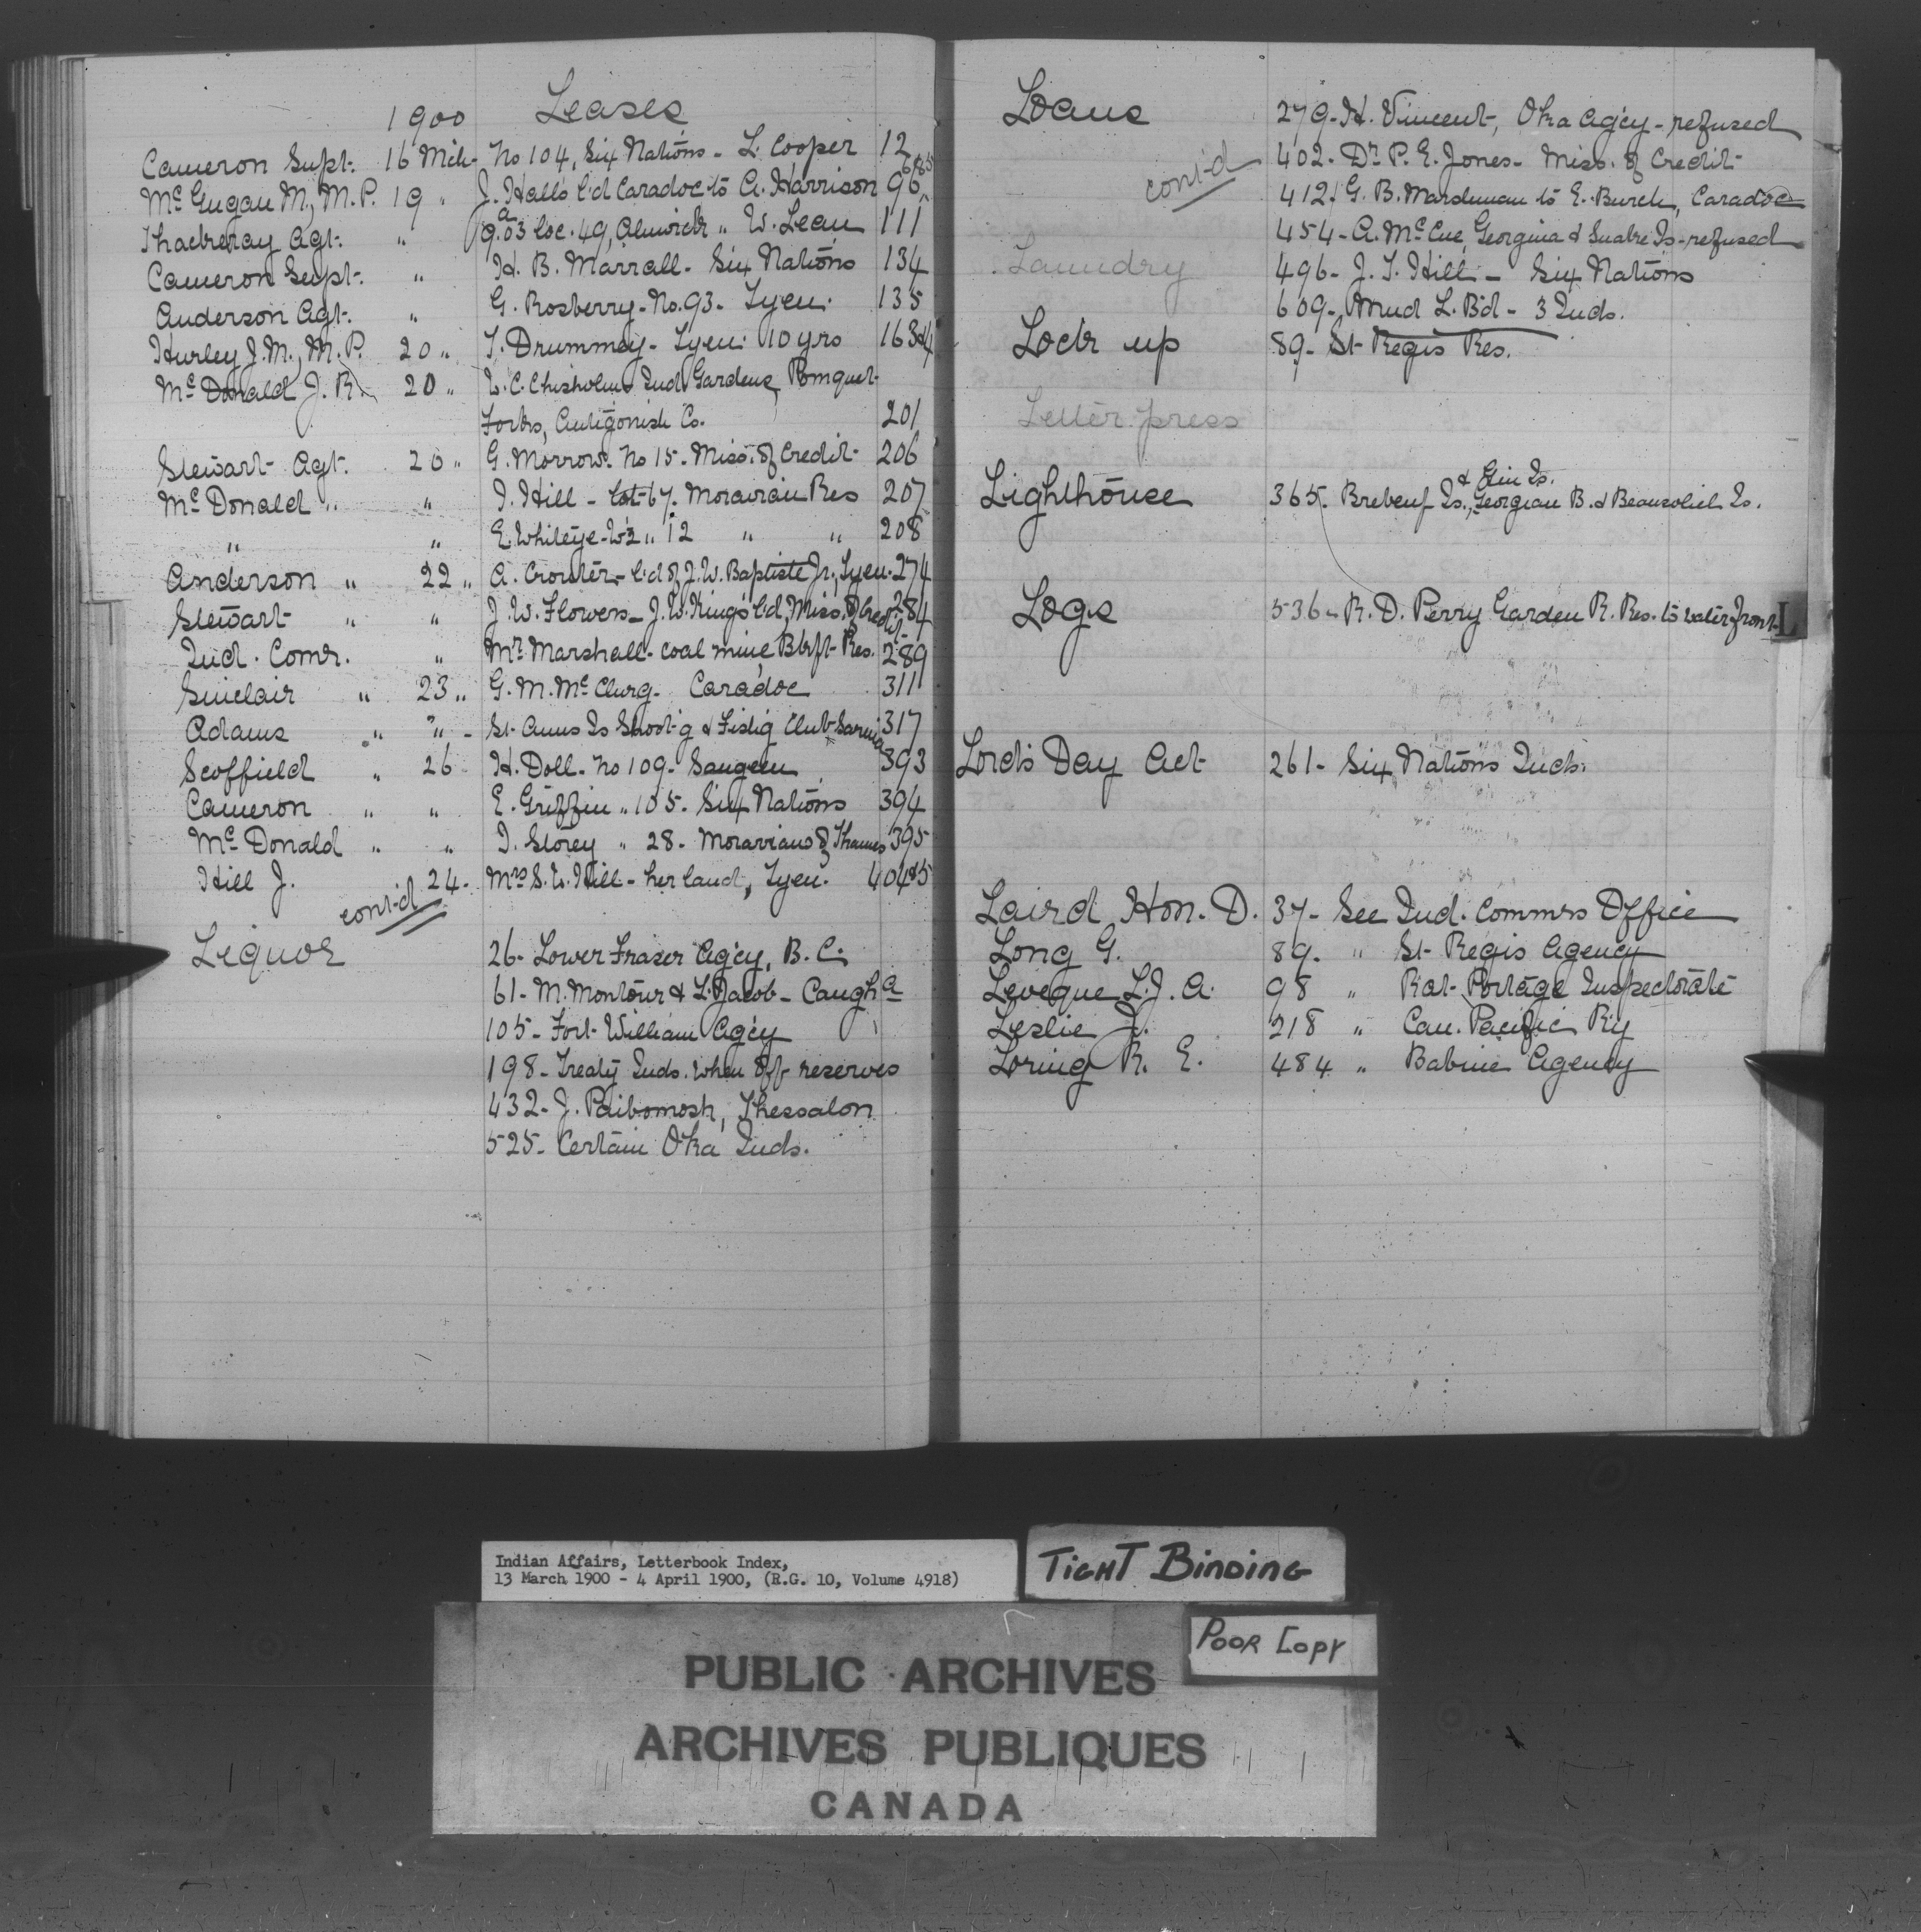 1900 Leases
Cameron Supt. 16 Mch. No 104, Six Nations - L. Cooper 12
McGugan M., M.P. 19 " J. Halls l'd Caradoc to A. Harrison 96
Thackeray Agt. " 9.03 loc. 49, Alnwick " W. Lean 111
Cameron Supt. " H. B. Marrall - Six Nations 134
Anderson Agt. " G. Rosberry - No. 93 - Tyen. 135
Hurley J. M., M.P. 20 " T. Drummey - Tyen. 10 yrs 163&4
McDonald J. R. 20 " L. C. Chisholm Ind. Gardens, Pomquet
Forks, Antigonish Co. 201
Stewart Agt. 20 " G. Morrow. No 15. Miss. of Credit 206
McDonald " " J. Hill - lot 67. Moravian Res 207
" " E. Whileye - W½ " 12 " " 208
Anderson " 22 " A. Crouter - l'd of J. W. Baptiste Jr., Tyen. 274
Stewart " " J. W. Flowers - J. W. King's l'd, Miss. of Credit 284
Ind. Comr. " Mr. Marshall - coal mine, Blkft. Res. 289
Sinclair " 23 " G. M. McClurg - Caradoc 311
Adams " " - St. Anns Is Shoot'g & Fish'g Club Sarnia 317
Scoffield " 26 H. Doll - No 109 - Saugeen 393
Cameron " " E. Griffin " 105 - Six Nations 394
McDonald " " J. Storey " 28 - Moravians of Thames 395
Hill J. 24 - Mrs S. L. Hill - her land, Tyen. 404&5
cont'd
Liquor 26 - Lower Fraser Ag'cy, B. C.
61 - M. Montour & L. Jacob - Caugha
105 - Fort William Ag'cy
198 - Treaty Inds. when off reserves
432 - J. Paibomosh, Thessalon
525 - Certain Oka Inds.
Loans 279 - H. Vincent, Oka Ag'cy - refused
cont'd 402 - Dr. P. E. Jones - Miss. of Credit
412 - G. B. to E. Burch, Caradoc
454 - A. McCue, Georgina & Snake Is - refused
Laundry 496 - J. T. Hill - Six Nations
609 - Mud L. B'd - 3 Inds.
Lock up 89 - St Regis Res.
Letter press
& Is.
Lighthouse 365 - Brebeuf Is., Georgian B. & Beausoliel Is.
Logs 536 - R. D. Perry Garden R. Res. to water front
L
Lord's Day Act 261 - Six Nations Inds.
Laird Hon. D. 37 - See Ind. Commrs Office
Long G. 89 - " St Regis Agency
Leveque L. J. A. 98 " Rat Portage Inspectorate
Leslie J. 218 " Can. Pacific R'y
Loring R. E. 484 " Babine Agency
Indian Affairs, Letterbook Index,
13 March 1900 - 4 April 1900, (R.G. 10, Volume 4918)
TIGHT BINDING
POOR COPY
PUBLIC ARCHIVES
ARCHIVES PUBLIQUES
CANADA